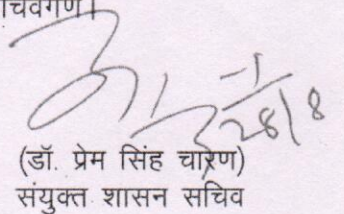 चिवगण।
28/8
(डॉ. प्रेम सिंह चारण)
संयुक्त शासन सचिव